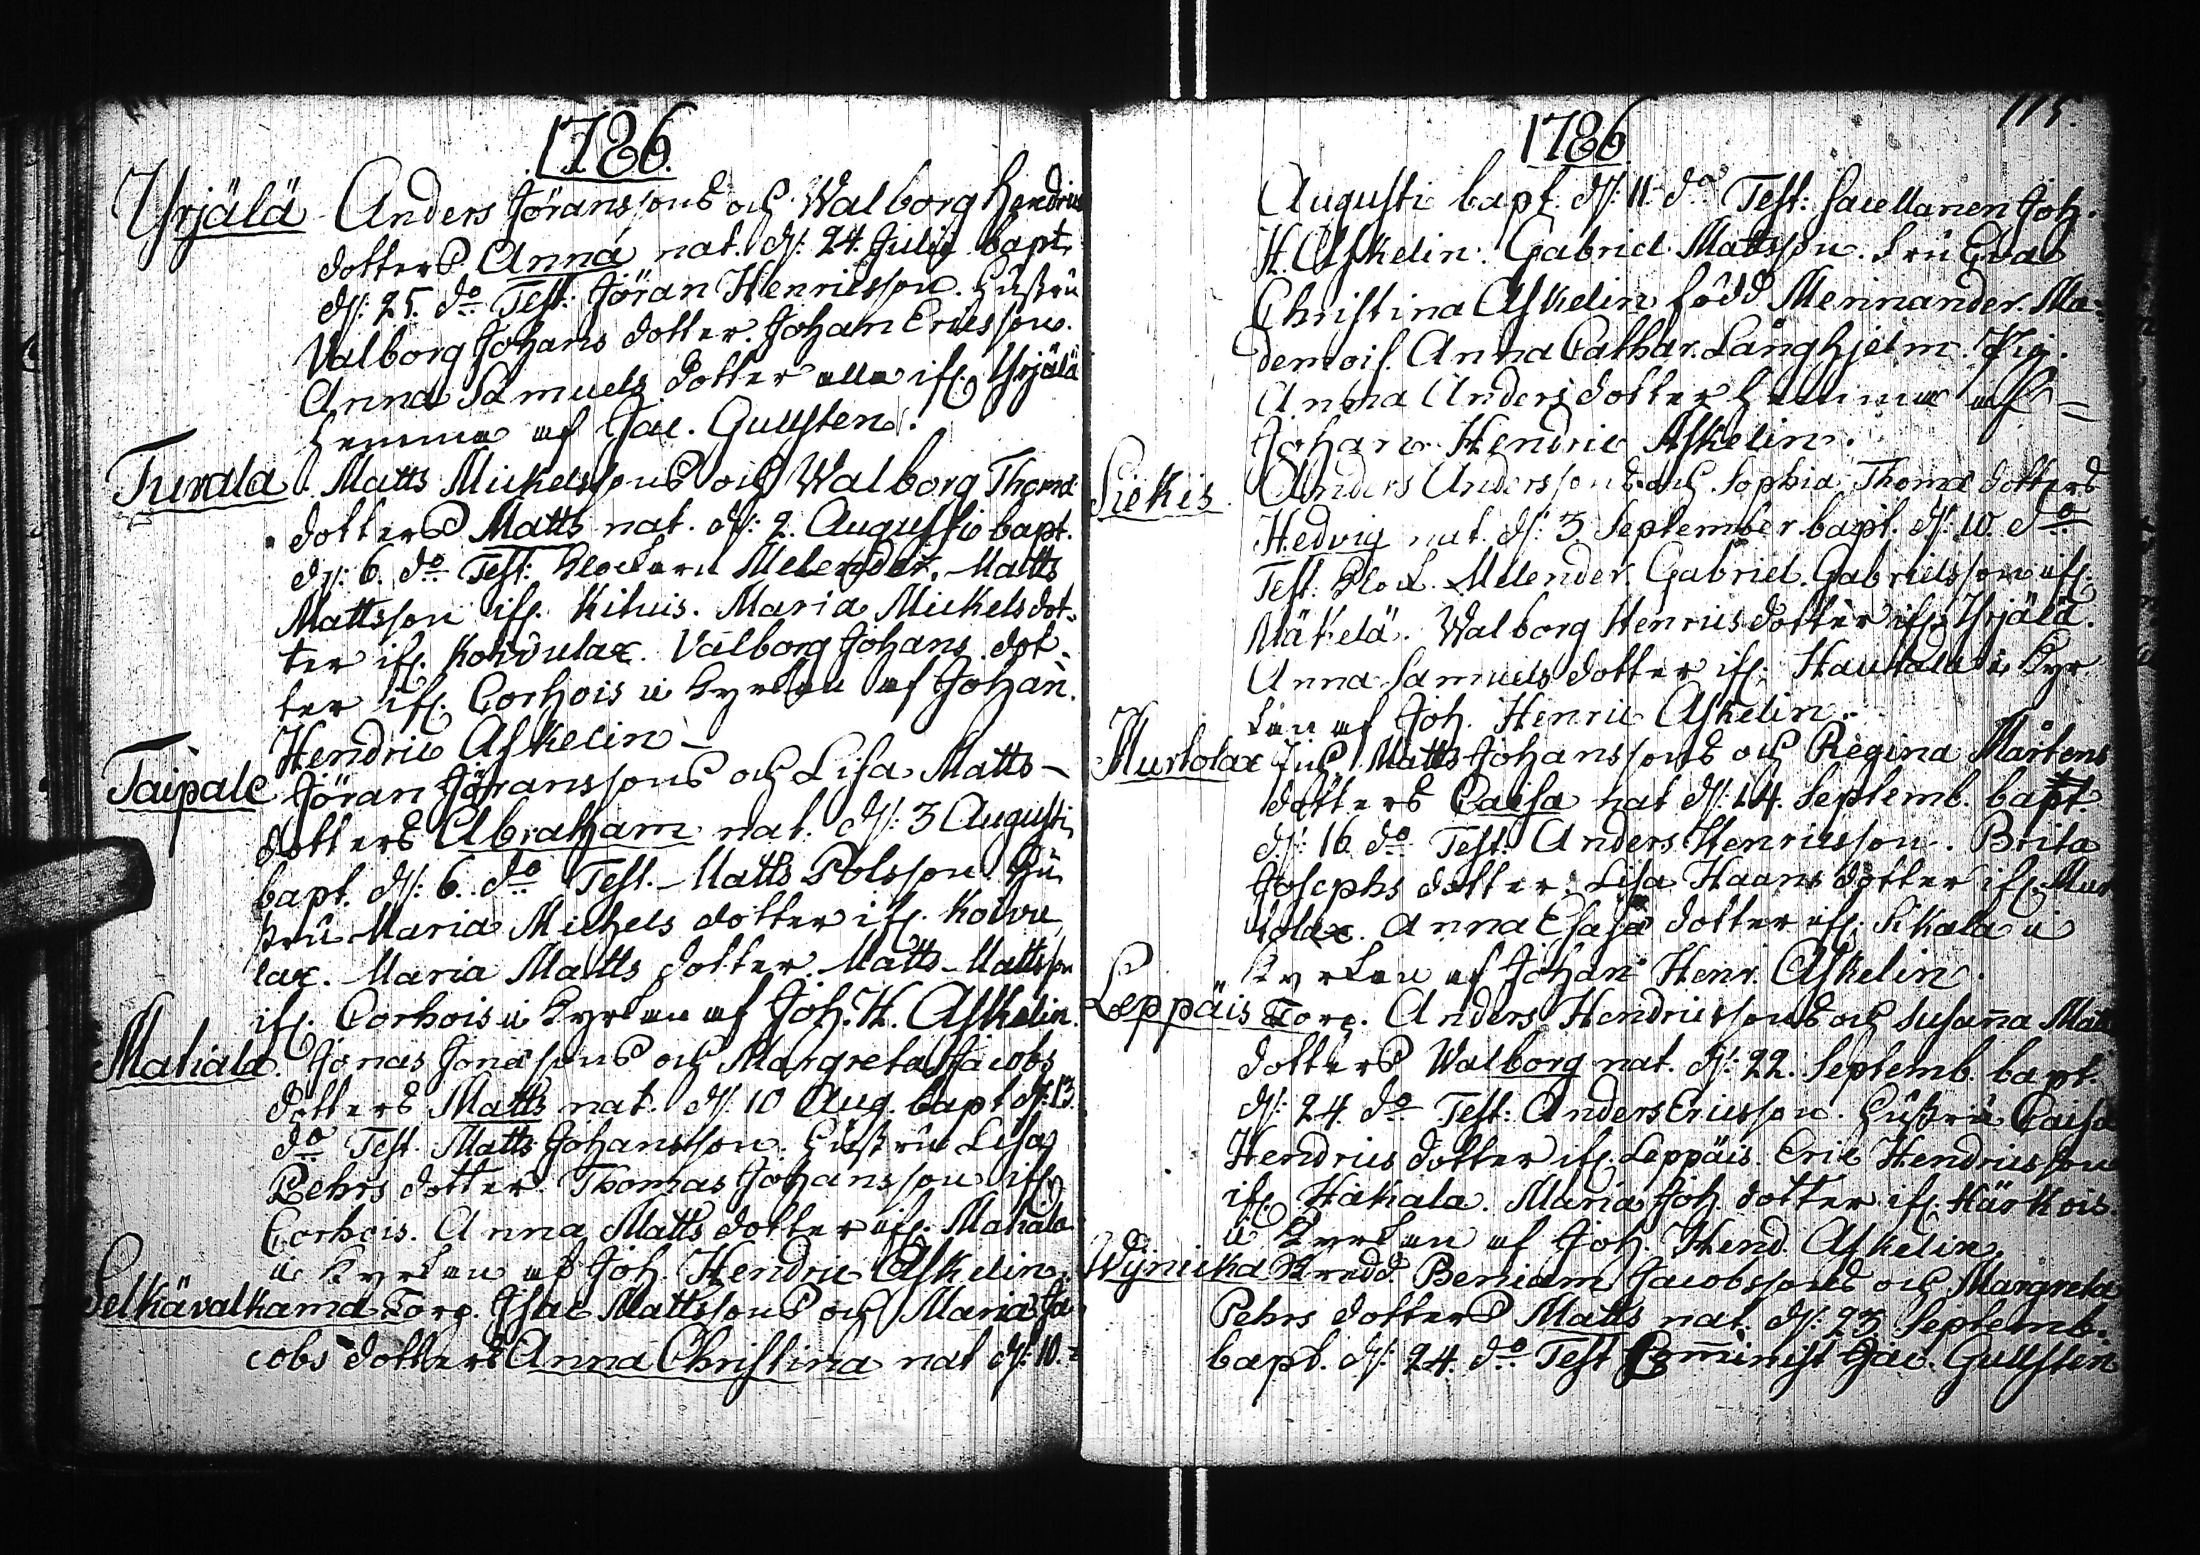 1786.
Yrjälä Anders Jöranssons och Walborg Hendrics
dotters Anna nat. d. 24. Julii bapt.
d. 25. do Test: Jöran Henricsson. Hustru
Valborg Johans dotter. Johan Ericsson.
Anna Samuels dotter alla ifr. Yrjälä
hemma af Jac. Gullsten.
Turvala. Matts Mickelssons och Walborg Thomæ
dotters Matts nat. d: 2. Augusti bapt.
d: 6. do Test: Klockaren Melender. Matts
Mattsson ifr. Kituis. Maria Mickels dot=
ter ifr. Koivulax. Valborg Johans dot=
ter ifr. Corhois i Kyrkan af Johan.
Hendric Askelin
Taipale Jöran Jöranssons och Lisa Matts
dotters Abraham nat. d: 3 Augusti
bapt. d: 6. do Test. Matts Polsson. Hu
stru Maria Michels dotter ifr. Koivu
lax. Maria Matts dotter. Matts Mattsson
ifr. Corhois i Kyrkan af Joh. H. Askelin.
Mahala. Jonas Jonæsons och Margreta Jacobs
dotters Matts nat. d: 10 Aug. bapt d: 13.
do Test. Matts Johansson. Hustru Lisa
Pehrs dotter. Thomas Johansson ifr.
Corhois. Anna Matts dotter ifr. Mahala
i Kyrkan af Joh. Hendric Askelin.
Selkävalkama Torp. Isac Mattssons och Maria Ja
cobs dotters Anna Christina nat d: 10.=
115.
1786.
Augusti bapt. d: 11 do Test: Sacellanen Joh.
H. Askelin. Gabriel Mattsson. Fru Eva
Christina Askelin född Mennander. Ma=
demois. Anna Cathar. Långhjelm. Pig.
Anna Anders dotter hemma af =
Johan Hendric Askelin.
Liekis. Anders Anderssons och Sophia Thomæ dotters
Hedvig nat. d: 3 September bapt. d: 10. do
Test: Klock. Melender. Gabriel Gabrielsson ifr.
Mäkelä. Walborg Henrics dotter ifr. Yrjälä.
Anna Samuels dotter ifr. Hautala i Kyr
kan af Joh. Henric Askelin.
Murtolax Inh. Matts Johanssons och Regina Mårtens
dotters Caisa nat d: 14. Septemb. bapt.
d: 16 do Test: Anders Henricsson. Brita
Josephs dotter. Lisa Haans dotter ifr. Mur
tolax. Anna Esaiæ dotter ifr. Sikala i
Kyrkan af Johan Henr. Askelin.
Leppäis Torp. Anders Hendricssons och Susanna Matts
dotters Walborg nat. d: 22. Septemb. bapt.
d: 24. do Test: Anders Ericsson. Hustru Caisa
Hendrics dotter ifr. Leppäis. Eric Hendricsson
ifr. Hakala. Maria Joh. dotter ifr. Härkois.
i Kyrkan af Joh. Hend. Askelin.
Wijnicka Beniam Jacobssons och Margreta
Pehrs dotters Matts nat. d: 23 Septemb.
bapt. d: 24. do Test Jac. Gullsten